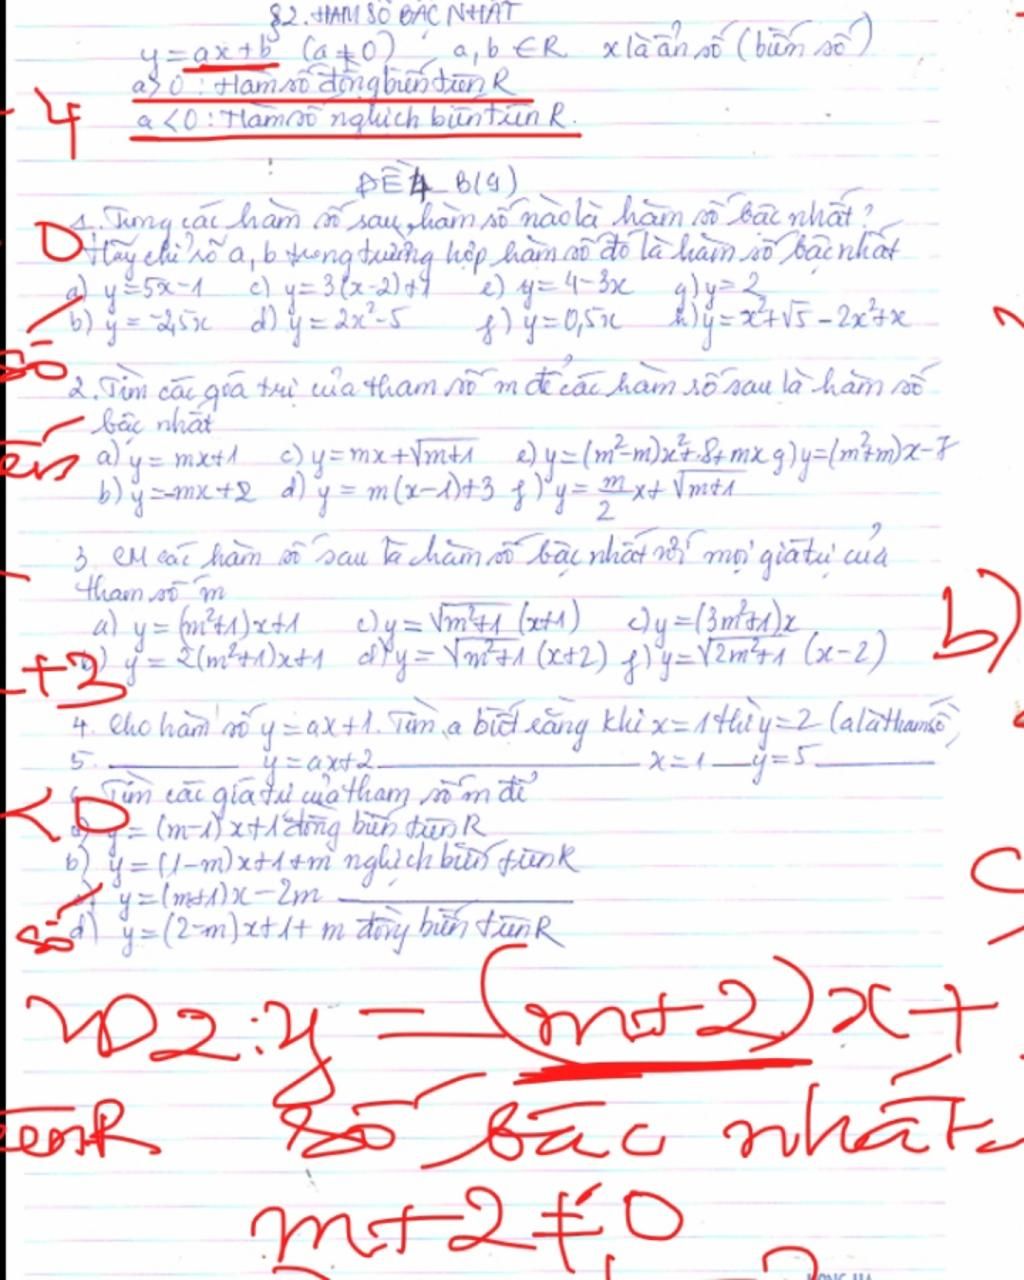 §2. HÀM SỐ BẬC NHẤT
y = ax+b (a ≠ 0) a, b ∈ R x là ẩn số (biến số)
a > 0 : Hàm số đồng biến trên R
4
a < 0 : Hàm số nghịch biến trên R.
ĐỀ 4 B(9)
1. Trong các hàm số sau, hàm số nào là hàm số bậc nhất?
0
Hãy chỉ rõ a, b trong trường hợp hàm số đó là hàm số bậc nhất
a) y = 5x-1 c) y = 3(x-2)+1 e) y = 4-3x g) y = 2
b) y = -2,5x d) y = 2x²-5 f) y = 0,5x h) y = x²+√5 - 2x²+x
số
2. Tìm các giá trị của tham số m để các hàm số sau là hàm số
bậc nhất
a) y = mx+1 c) y = mx+√m+1 e) y = (m²-m)x²+8+mx g) y = (m²+m)x-7
b) y = -mx+2 d) y = m(x-1)+3 f) y = m/2 x+√m+1
3. CM các hàm số sau là hàm số bậc nhất với mọi giá trị của
tham số m
a) y = (m²+1)x+1 c) y = √m²+1 (x+1) c) y = (3m²+1)x
b)
y = 2(m²+1)x+1 d) y = √m²+1 (x+2) f) y = √2m²+1 (x-2)
+3
4. Cho hàm số y = ax+1. Tìm a biết rằng khi x = 1 thì y = 2 (a là tham số)
5. ___ y = ax+2 ___ x = 1 __ y = 5 ___
Tìm các giá trị của tham số m để
< 0
y = (m-1)x+1 đồng biến trên R
b) y = (1-m)x+1+m nghịch biến trên R
C
y = (m+1)x-2m ___
số
d) y = (2-m)x+1+m đồng biến trên R
VD2: y = (m+2)x +
trên R số bậc nhất
m+2 ≠ 0